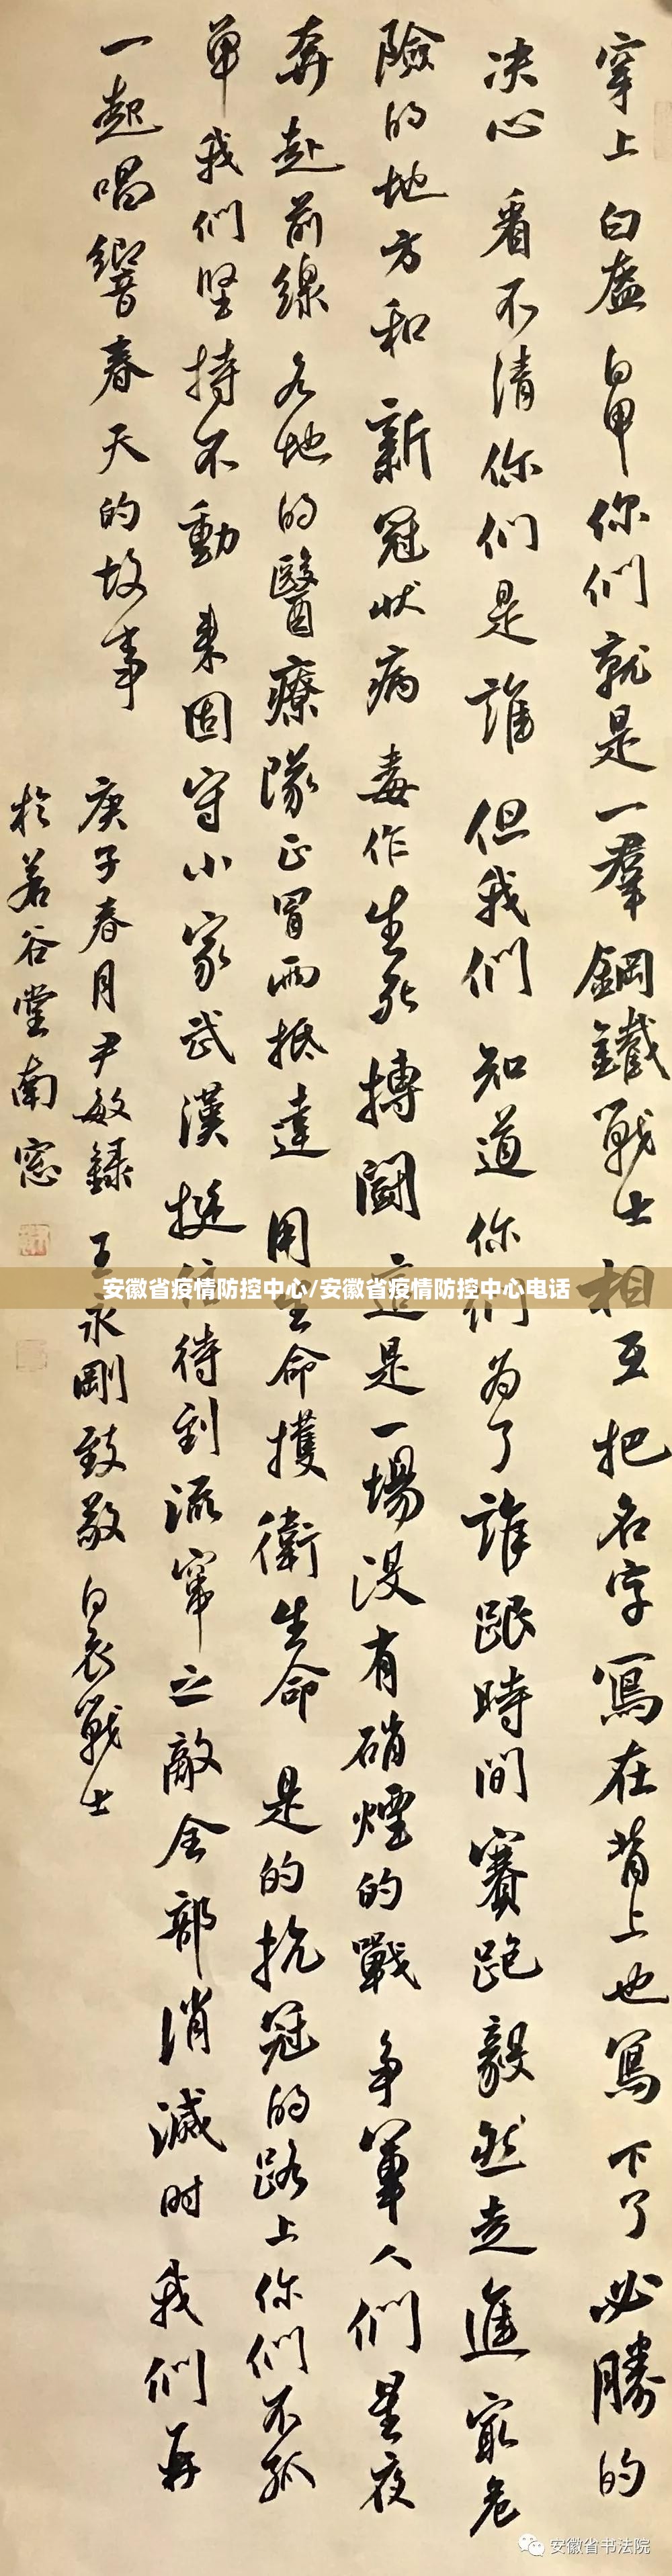 穿上白盔白甲你们就是一群鋼鐵戰士相互把名字寫在背上也寫下了必勝的
决心看不清你们是誰但我们知道你们为了誰跟時间賽跑毅然走進最危
險的地方和新冠状病毒作生死搏鬭這是一場没有硝煙的戰争軍人们星夜
奔赴前線各地的醫療隊正冒雨抵達用生命护衛生命是的抗冠的路上你们不孤
单我们坚持不動来固守小家武漢挺住待到流窜之敵全部消滅时我们再
一起唱響春天的故事
庚子春月尹敏録王永剛致敬白衣戰士
於若谷堂南窓
安徽省疫情防控中心/安徽省疫情防控中心电话
安徽省书法院